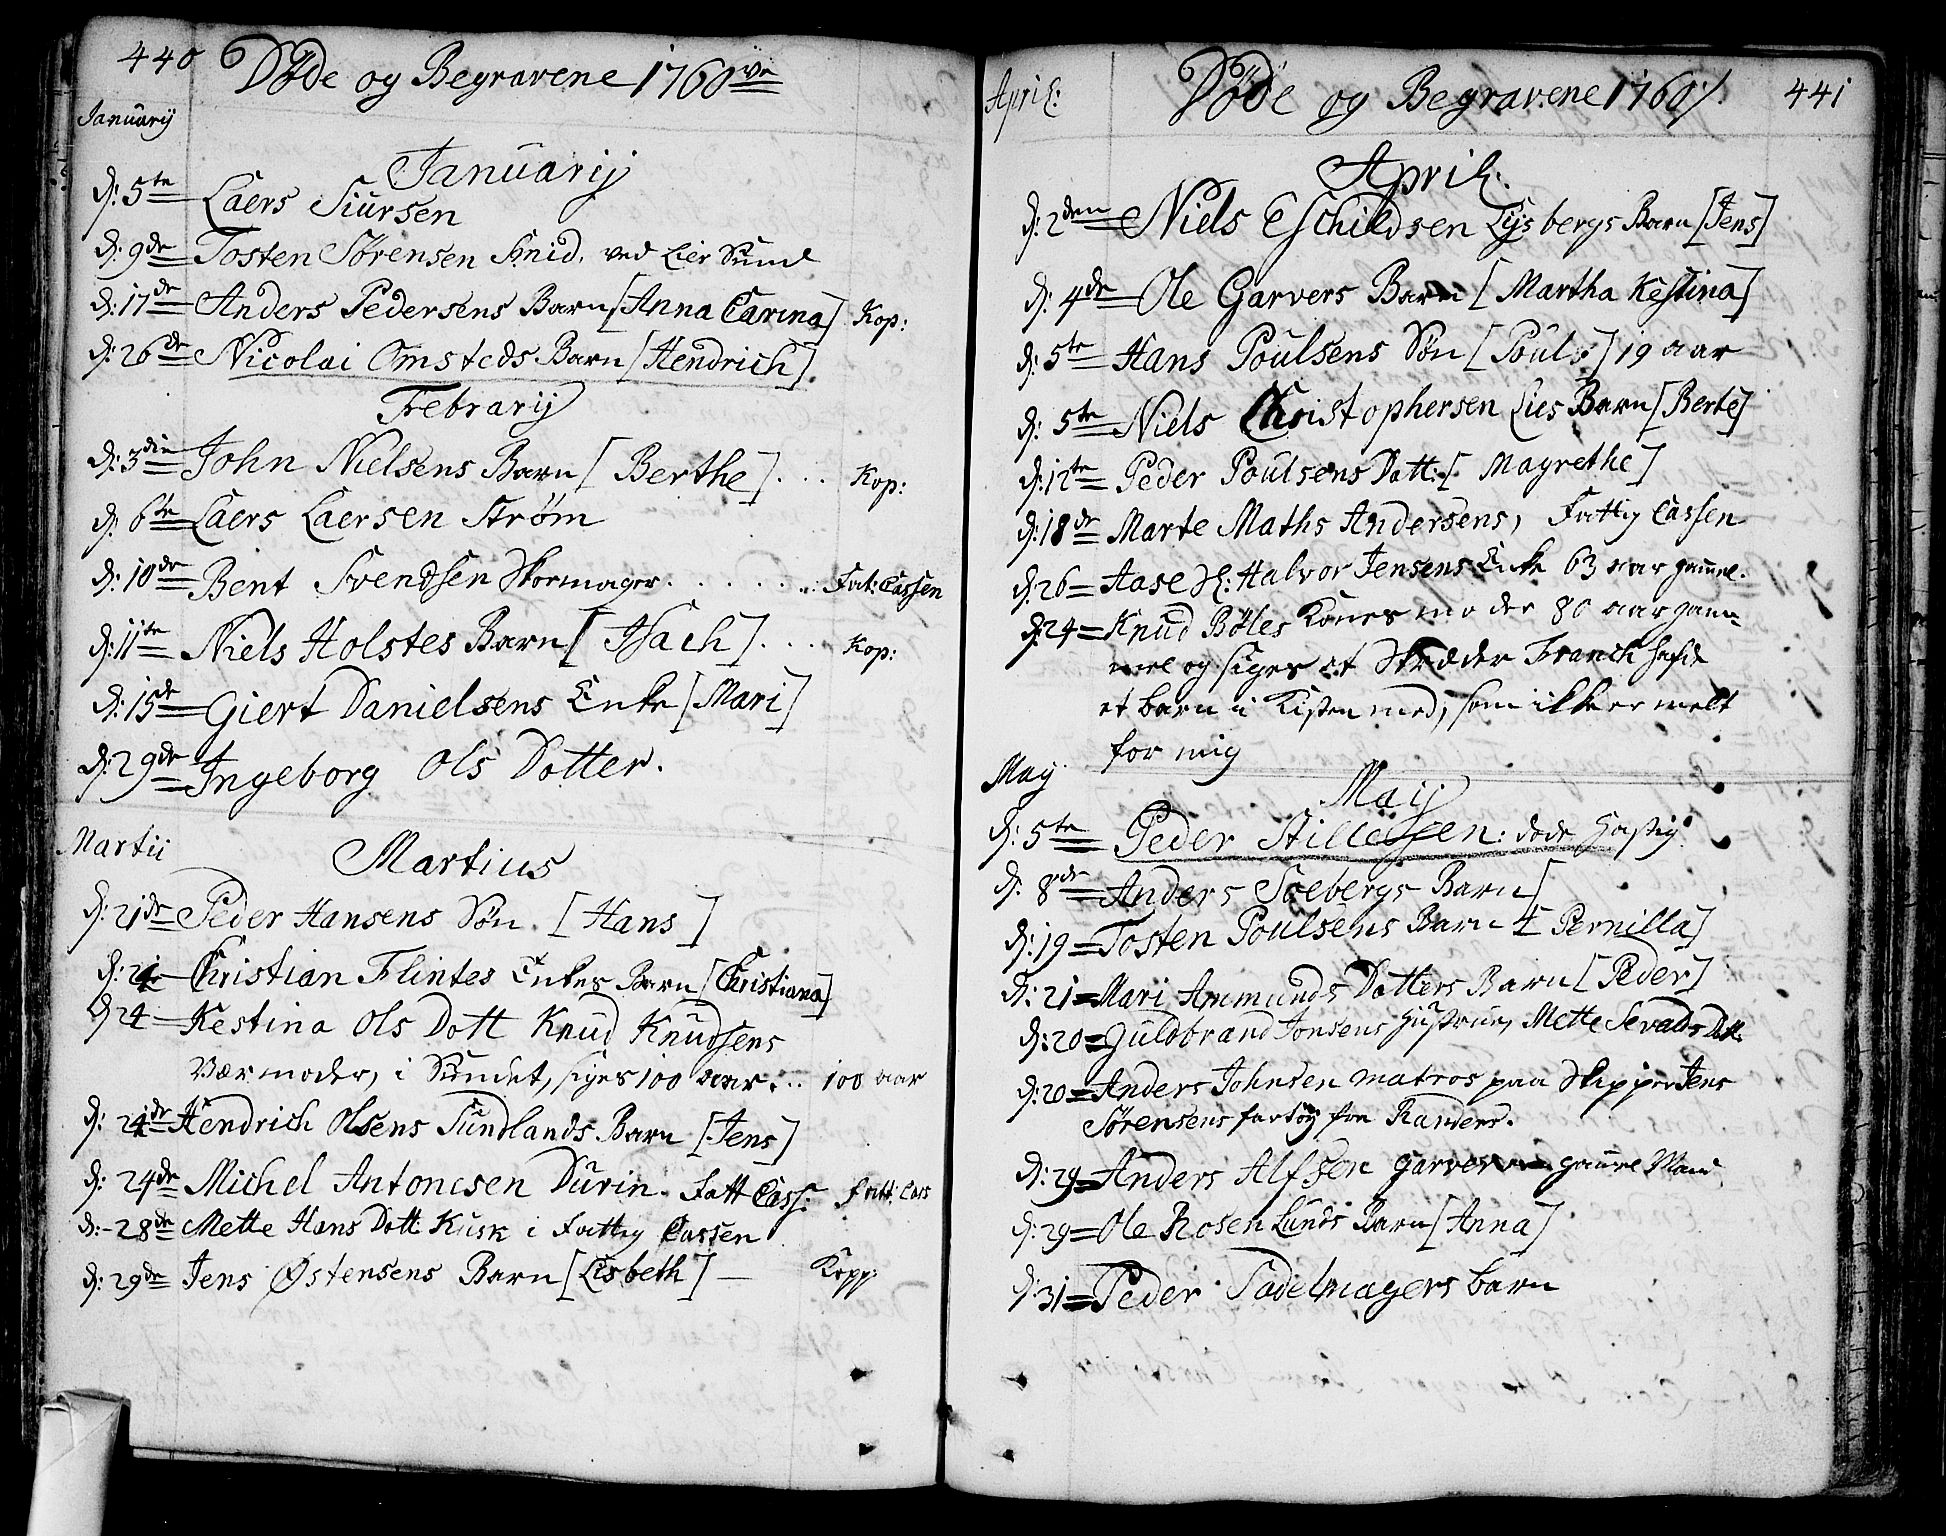 440 Døde og Begravene 1760ve
Januarij
Januarij
d: 5te Laers Siursen
d: 9de Tosten Sørensen Smid, ved Lier Sund
d: 17de Anders Pedersens Barn [Anna Carina] Kop:
d: 26de Nicolai Omsteds Barn [Hendrich]
Febrarij
d: 3die John Nielsens Barn [Berthe] . . . Kop:
d. 6te Laers Laersen Strøm
d: 10de Bent Svendsen Skormager . . . . . . . Fat: Cassen
d: 11te Niels Holstes Barn [Isach] . . . Kop:
d: 15de Giert Danielsens Enke [Mari]
d: 29de Ingeborg Ols Dotter.
Martii
Martius
d: 21de Peder Hansens Søn. [Hans]
d: 24 Christian Flintes Enkes Barn [Christiana]
d 24 Kestina Ols Dott Knud Knudsens
Værmoder, i Sundet, siges 100 aar . . . 100 aar
d: 24de Hendrich Olsens Sundlands Barn [Jens]
d: 24de Michel Antonesen Durin. Fatt Cass: Fatt. Cass
d: 28de Mette Hans Dott Kusk i Fattig Cassen
d: 29de Jens Østensens Barn [Lisbeth] — Kopp:
April: Døde og Begravene 1760/. 441
April:
d: 2den Niels Eschildsen Lysbergs Barn [Jens]
d: 4de Ole Garvers Barn [Martha Kestina]
d: 5te Hans Poulsens Søn [Poul] 19 aar
d: 5te Niels Christophersen Lies Barn [Berte]
d: 12te Peder Poulsens Dott: [Magrethe]
d: 18de Marte Maths Andersens, Fattig Cassen
d: 26 Aase Sl: Halvor Jensens Enke 63 aar gamel.
d: 24 Knud Bøles Kones moder 80 aar gam
mel og siges at Skreder Franck hafde
et barn i Kisten med, som ikke er melt
for mig
May
Maij
d: 5te Peder Stillesen: døde hastig
d: 8de Anders Soebergs Barn [
d: 19 Tosten Poulsens Barn [Pernilla]
d: 21 Mari Ammunds Dotters Barn [Peder]
d: 20 Guldbrand Jonsens Hustrue, Mette Sevalds Dott.
d: 20 Anders Johnsen matros paa Skipper Jens
Sørensens fartøy fra Randers.
d: 29 Anders Alfsen garver gamel Mand
d: 29 Ole Rosenlunds Barn [Anna]
d: 31 Peder Sadelmagers barn